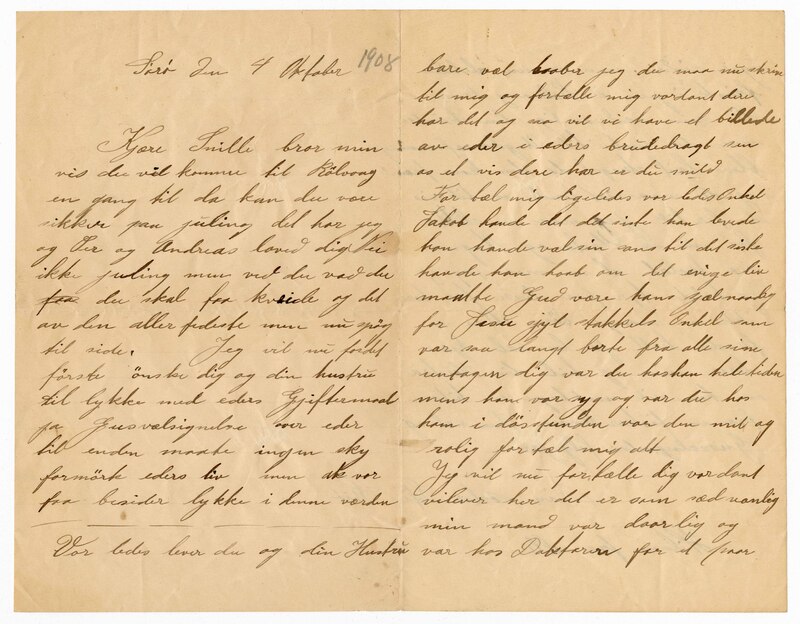 Sørø den 4 Oktober 1908
Kjære Snille bror min
vis du vil komme til Rölvaag
en gang til da kan du være
sikker paa juling det har jeg
og Per og Andreas loved dig ei
ikke juling men ved du vad du
faa du skal faa kveide og det
av den aller fedeste men nu spög
til side. Jeg vil nu fordet
förste önske dig og din hustru
til lykke med eders Gjiftermaal
og Gusvælsignelse over eder
til enden maate ingen sky
formörke eders liv men
faa besider lykke i denne værden
Vor ledes lever du og din Hustru
bare vel haaber jeg du maa nu skrive
til mig og fortælle mig vordant dere
har det og saa vil vi have et billede
av eder i eders brudedragt sen
os et vis dere har er du snild
For tæl mig ligeledes vor leds Onkel
Jakob havde det det siste han levede
han havde vælsin sans til det siste
havde han haab om det evige liv
maatte Gud være hans sjælnaadig
for Jesu skyl stakkels Onkel som
var saa langt borte fra alle sine
untagen dig var du hoshan heletiden
mens han var syg og var du hos
ham i dösstunden var den mit og
rolig for tæl mig alt
Jeg vil nu fortælle dig vordant
vilever her det er som sædvanlig
min mand var daarlig og
var hos Doktoren for et paar